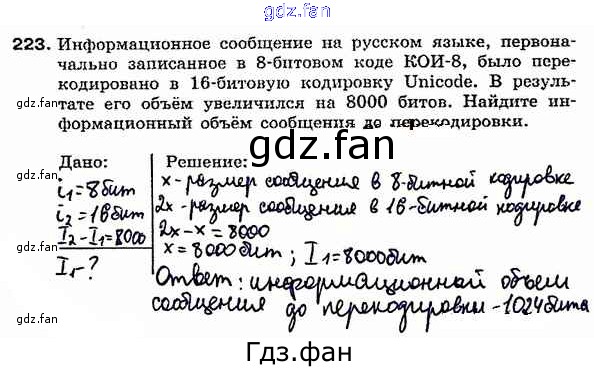 gdz.fan
223. Информационное сообщение на русском языке, первона-
чально записанное в 8-битовом коде КОИ-8, было пере-
кодировано в 16-битовую кодировку Unicode. В резуль-
тате его объём увеличился на 8000 битов. Найдите ин-
формационный объём сообщения до перекодировки.
gdz.fan
gdz.fan
gdz.fan
Дано:
i₁=8бит
i₂=16бит
I₂-I₁=8000
I₁-?
Решение:
x-размер сообщения в 8-битной кодировке
2x-размер сообщения в 16-битной кодировке
2x-x=8000
x=8000бит; I₁=8000бит
Ответ: информационной объем
сообщения до перекодировки-1024бита
gdz.fan
gdz.fan
gdz.fan
gdz.fan
Гдз.фан